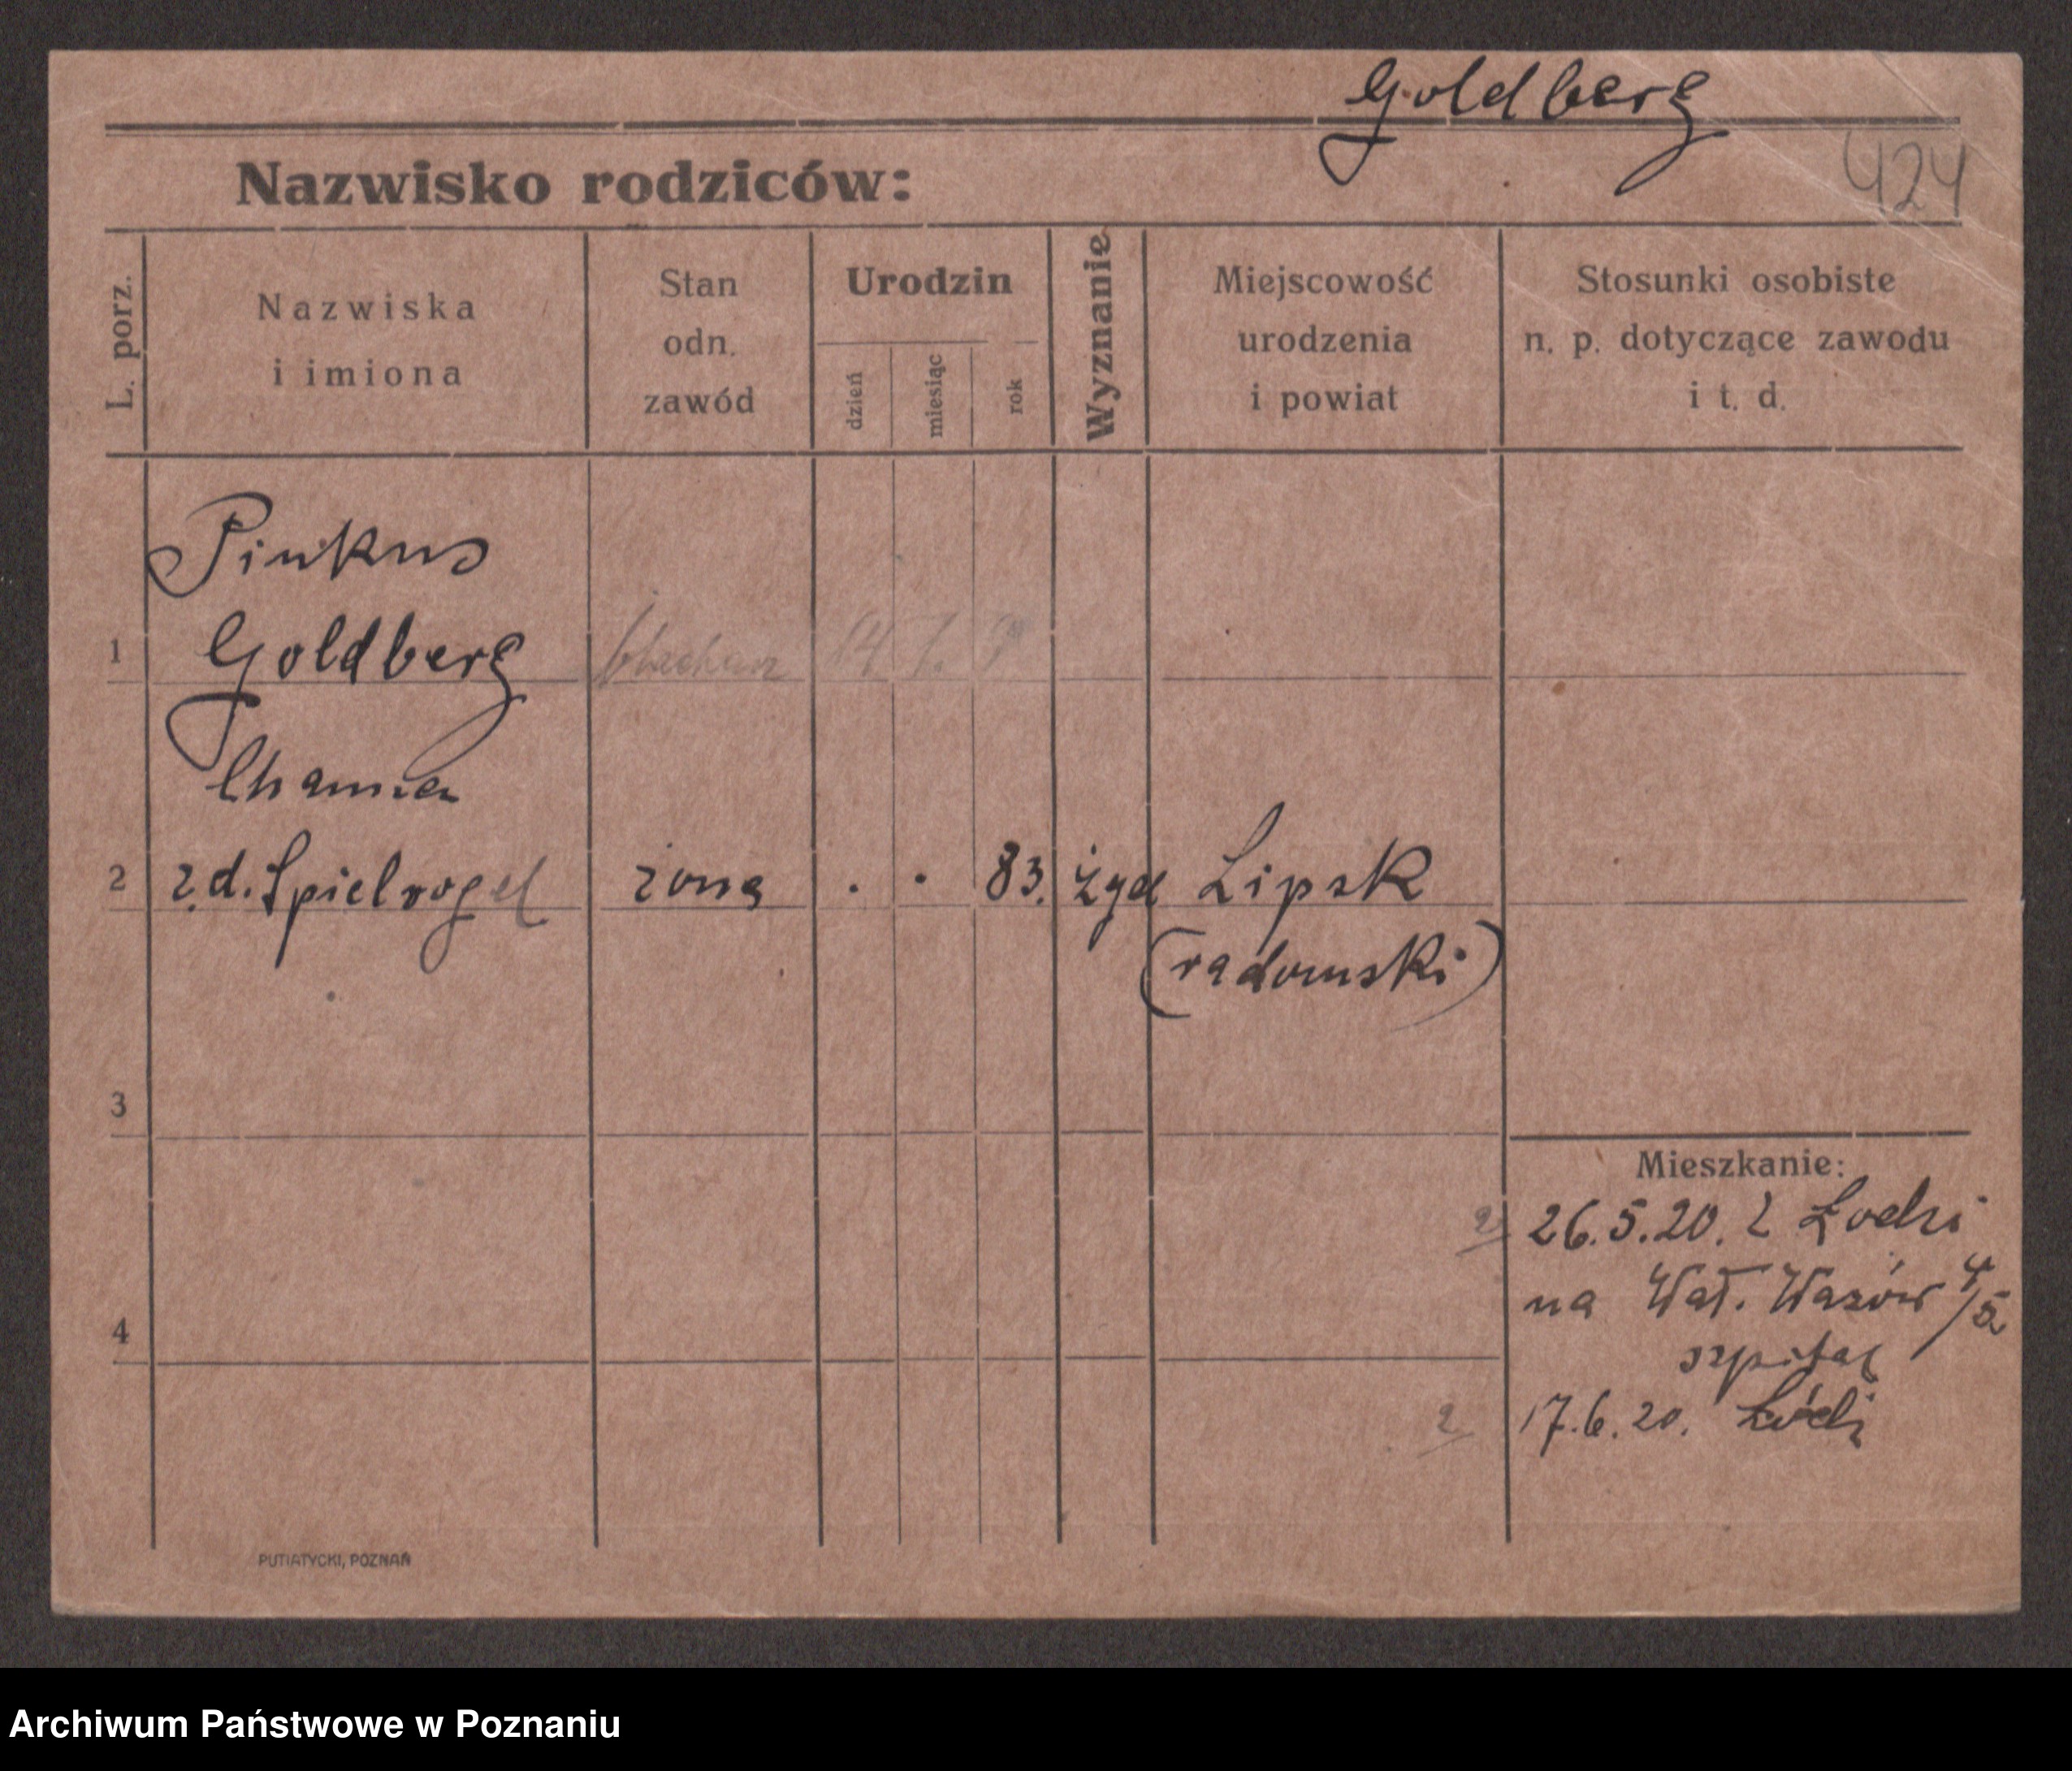 Goldberg
424
Nazwisko rodziców:
L. porz.
Nazwiska
i imiona
Stan
odn.
zawód
Urodzin
dzień
miesiąc
rok
Wyznanie
Miejscowość
urodzenia
i powiat
Stosunki osobiste
n. p. dotyczące zawodu
i t. d.
Pinkus
1 Goldberg
Channa
2 z.d. Spielvogel żona . . 83. żyd Lipsk
(radomski)
3
Mieszkanie:
2 26.5.20. z Łodzi
na Wał. Wazów 4/5
4
szpital
2 17.6.20. Łódź
PUTIATYCKI, POZNAŃ
Archiwum Państwowe w Poznaniu